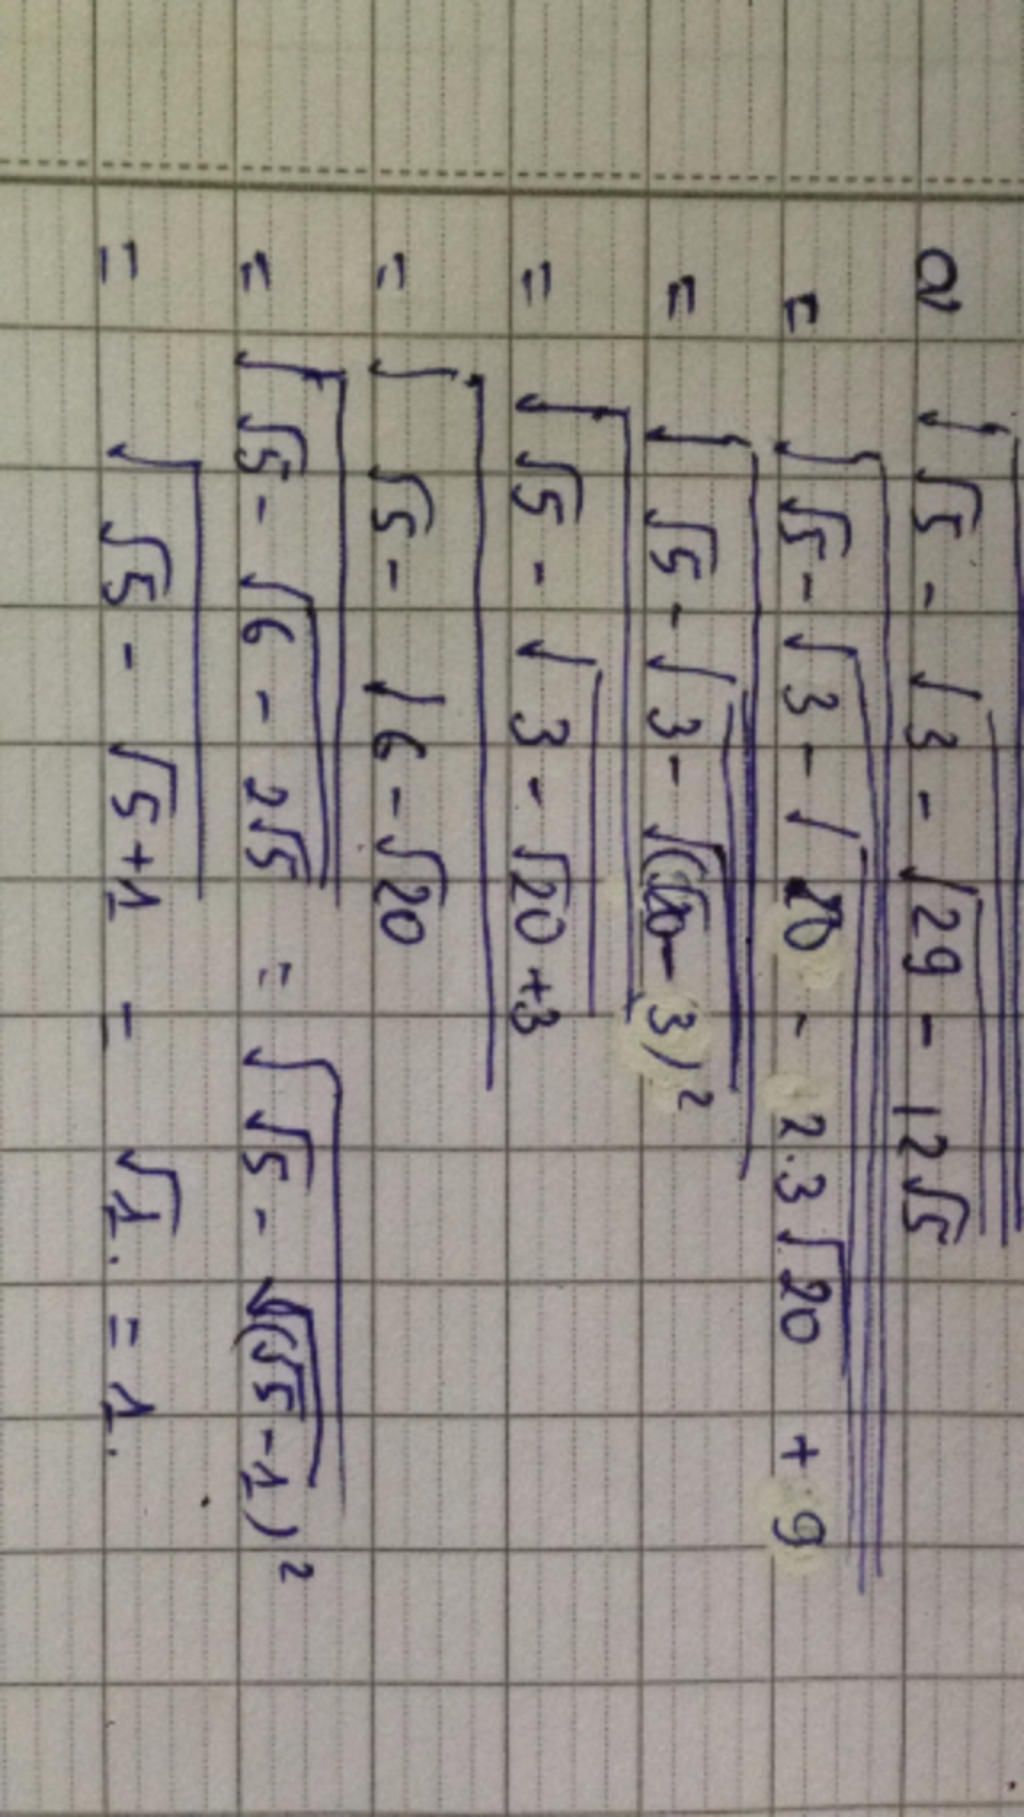 a √(√5 - √(3 - √(29 - 12√5)))
= √(√5 - √(3 - √(20 - 2.3√20 + 9)))
= √(√5 - √(3 - √(√20 - 3)²))
= √(√5 - √(3 - √20 + 3))
= √(√5 - √(6 - √20))
= √(√5 - √(6 - 2√5)) = √(√5 - √(√5 - 1)²)
= √(√5 - √5 + 1) = √1. = 1.